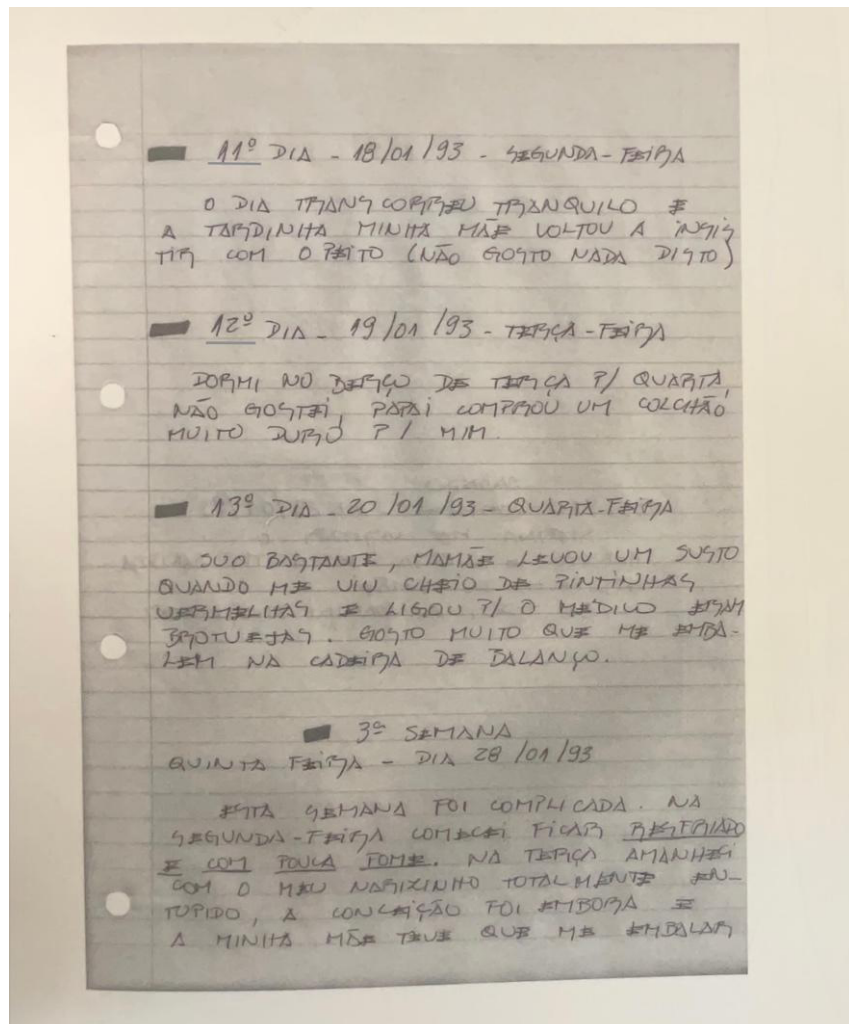 11º DIA - 18/01/93 - SEGUNDA-FEIRA
O DIA TRANSCORREU TRANQUILO E
A TARDINHA MINHA MÃE VOLTOU A INSIS
TIR COM O PEITO (NÃO GOSTO NADA DISTO)
12º DIA - 19/01/93 - TERÇA-FEIRA
DORMI NO BERÇO DE TERÇA P/ QUARTA,
NÃO GOSTEI, PAPAI COMPROU UM COLCHÃO
MUITO DURO P/ MIM.
13º DIA - 20/01/93 - QUARTA-FEIRA
SUO BASTANTE, MAMÃE LEVOU UM SUSTO
QUANDO ME VIU CHEIO DE PINTINHAS
VERMELHAS E LIGOU P/ O MÉDICO ERAM
BROTUEJAS. GOSTO MUITO QUE ME EMBA-
LEM NA CADEIRA DE BALANÇO.
3ª SEMANA
QUINTA FEIRA - DIA 28/01/93
ESTA SEMANA FOI COMPLICADA. NA
SEGUNDA-FEIRA COMECEI FICAR RESFRIADO
E COM POUCA FOME. NA TERÇA AMANHECI
COM O MEU NARIXINHO TOTALMENTE EN-
TUPIDO, A CONCEIÇÃO FOI EMBORA E
A MINHA MÃE TEVE QUE ME EMBALAR